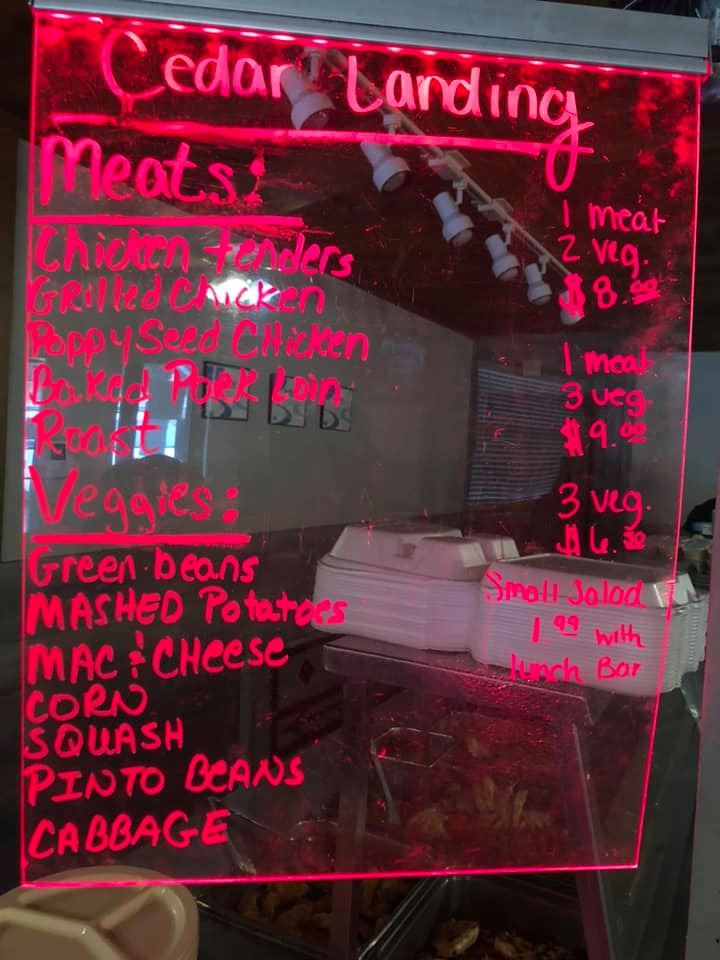 Cedar Landing
Meats:
Chicken tenders
GRilled Chicken
Poppy Seed CHicken
Baked PORK Loin
Roast
Veggies:
Green beans
MASHED Potatoes
MAC & CHeese
CORN
SQUASH
PINTO BEANS
CABBAGE
1 meat
2 veg.
$8.00
1 meat
3 veg.
$9.00
3 veg.
$6.50
Small Salad
1.99 with
lunch Bar